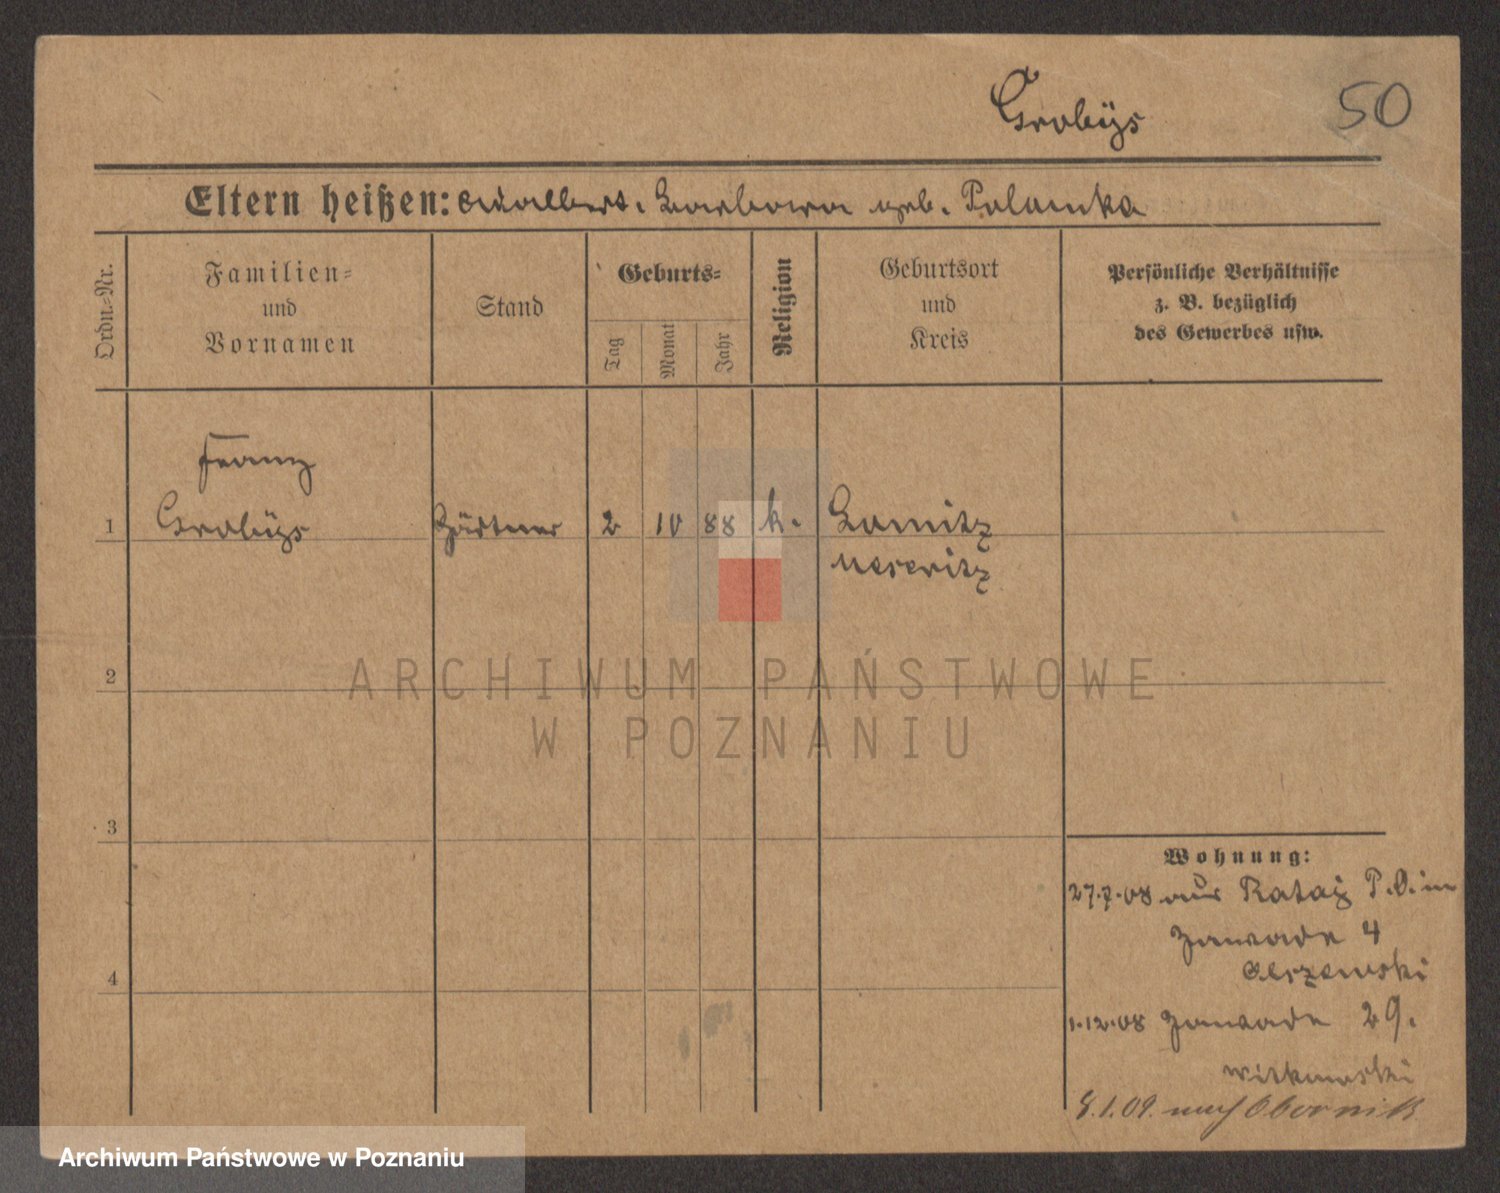 Grobÿs
50
Eltern heißen: Adalbert. Barbara geb. Polanka
Ordn.=Nr.
Familien=
und
Vornamen
Stand
Geburts=
Tag
Monat
Jahr
Religion
Geburtsort
und
Kreis
Persönliche Verhältnisse
z. B. bezüglich
des Gewerbes usw.
Franz
1 Grobÿs Gärtner 2 10 88 k.
Meseritz
2
ARCHIWUM PAŃSTWOWE
W POZNANIU
3
Wohnung:
27.7.08 aus Rataj P.O. in
Zawade 4
Olszewski
4
1.12.08 Zawade 29.
Witkowski
8.1.09. nach Obornik
Archiwum Państwowe w Poznaniu